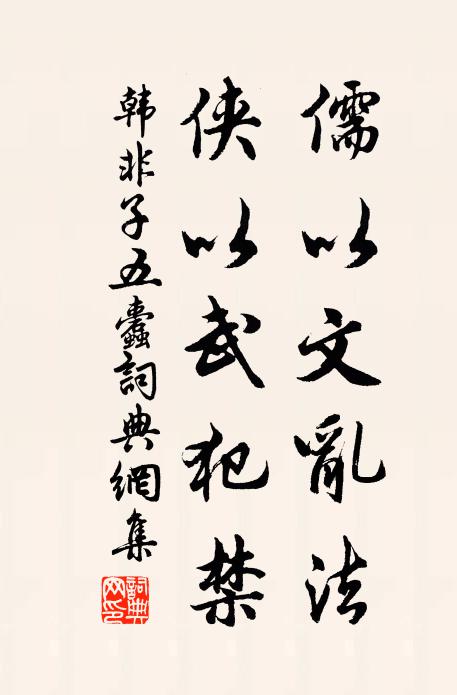 儒以文亂法
俠以武犯禁
韩非子五蠹詞典網集
詞典网印